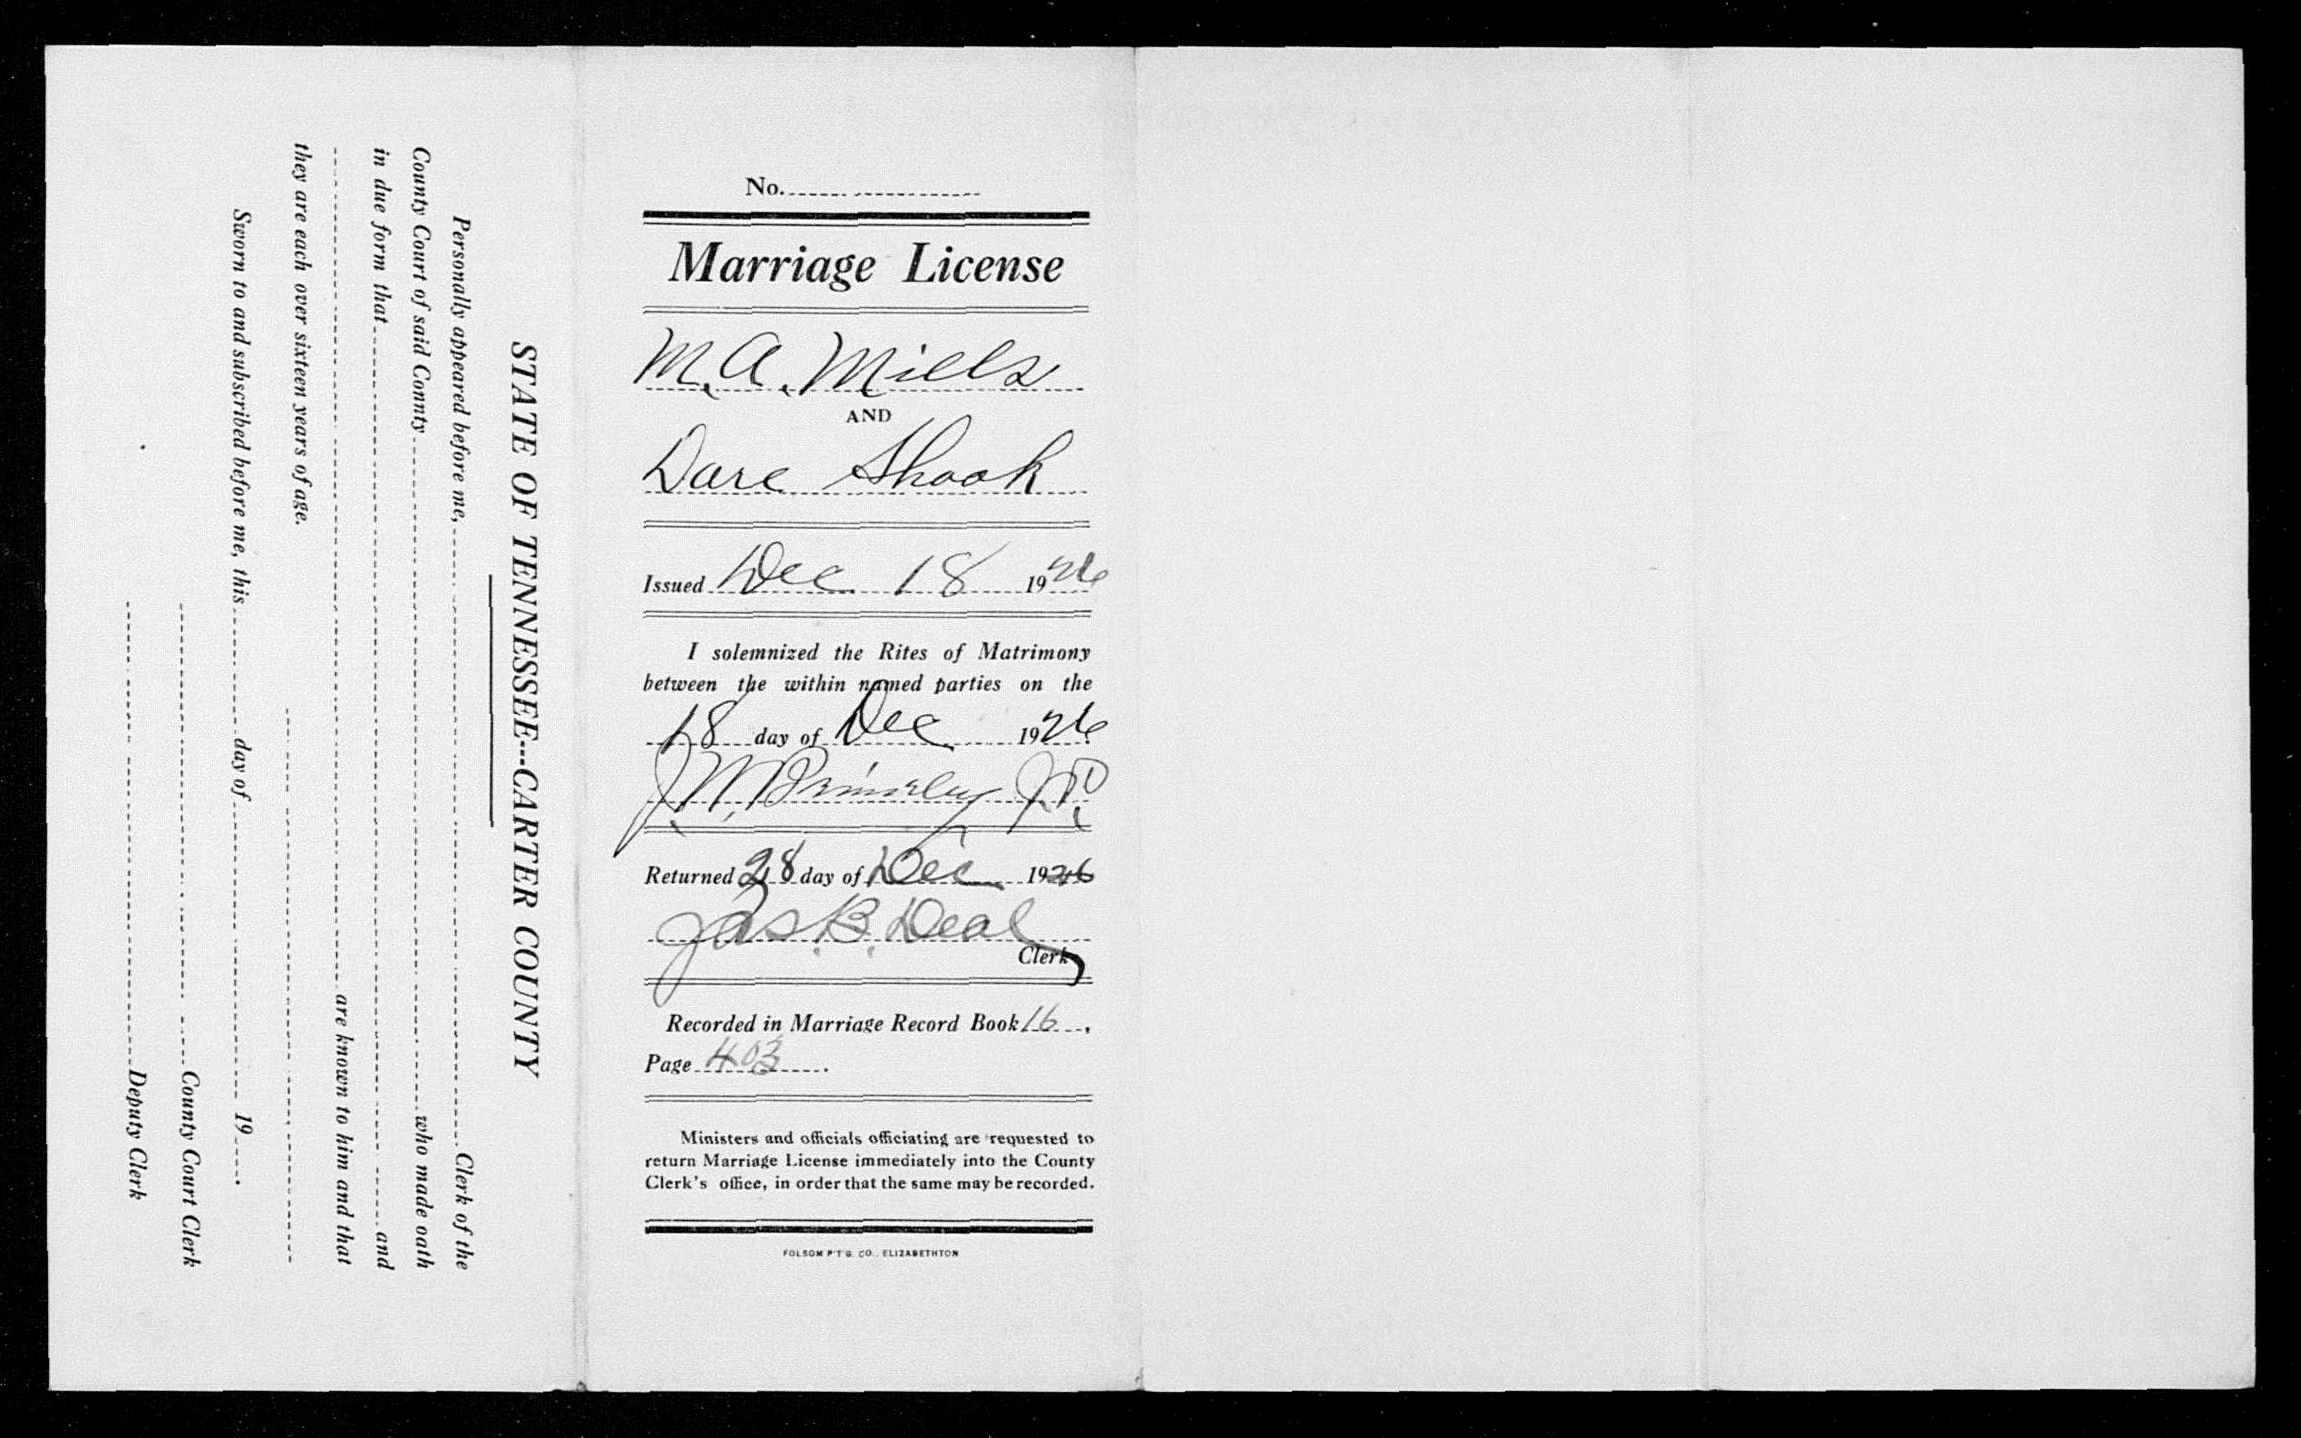 STATE OF TENNESSEE--CARTER COUNTY
Personally appeared before me, Clerk of the
County Court of said Connty who made oath
in due form that and
are known to him and that
they are each over sixteen years of age.
Sworn to and subscribed before me, this day of 19 .
County Court Clerk
Deputy Clerk
No.
Marriage License
M. A. Mills
AND
Dare Shook
Issued Dec 18 1926
I solemnized the Rites of Matrimony
between the within named parties on the
18 day of Dec 1926
J. W. J. P.
Returned 28 day of Dec 1926
Jas. B. Deal
Clerk
Recorded in Marriage Record Book 16 ,
Page 403 .
Ministers and officials officiating are requested to
return Marriage License immediately into the County
Clerk's office, in order that the same may be recorded.
FOLSOM P'T'G. CO., ELIZABETHTON